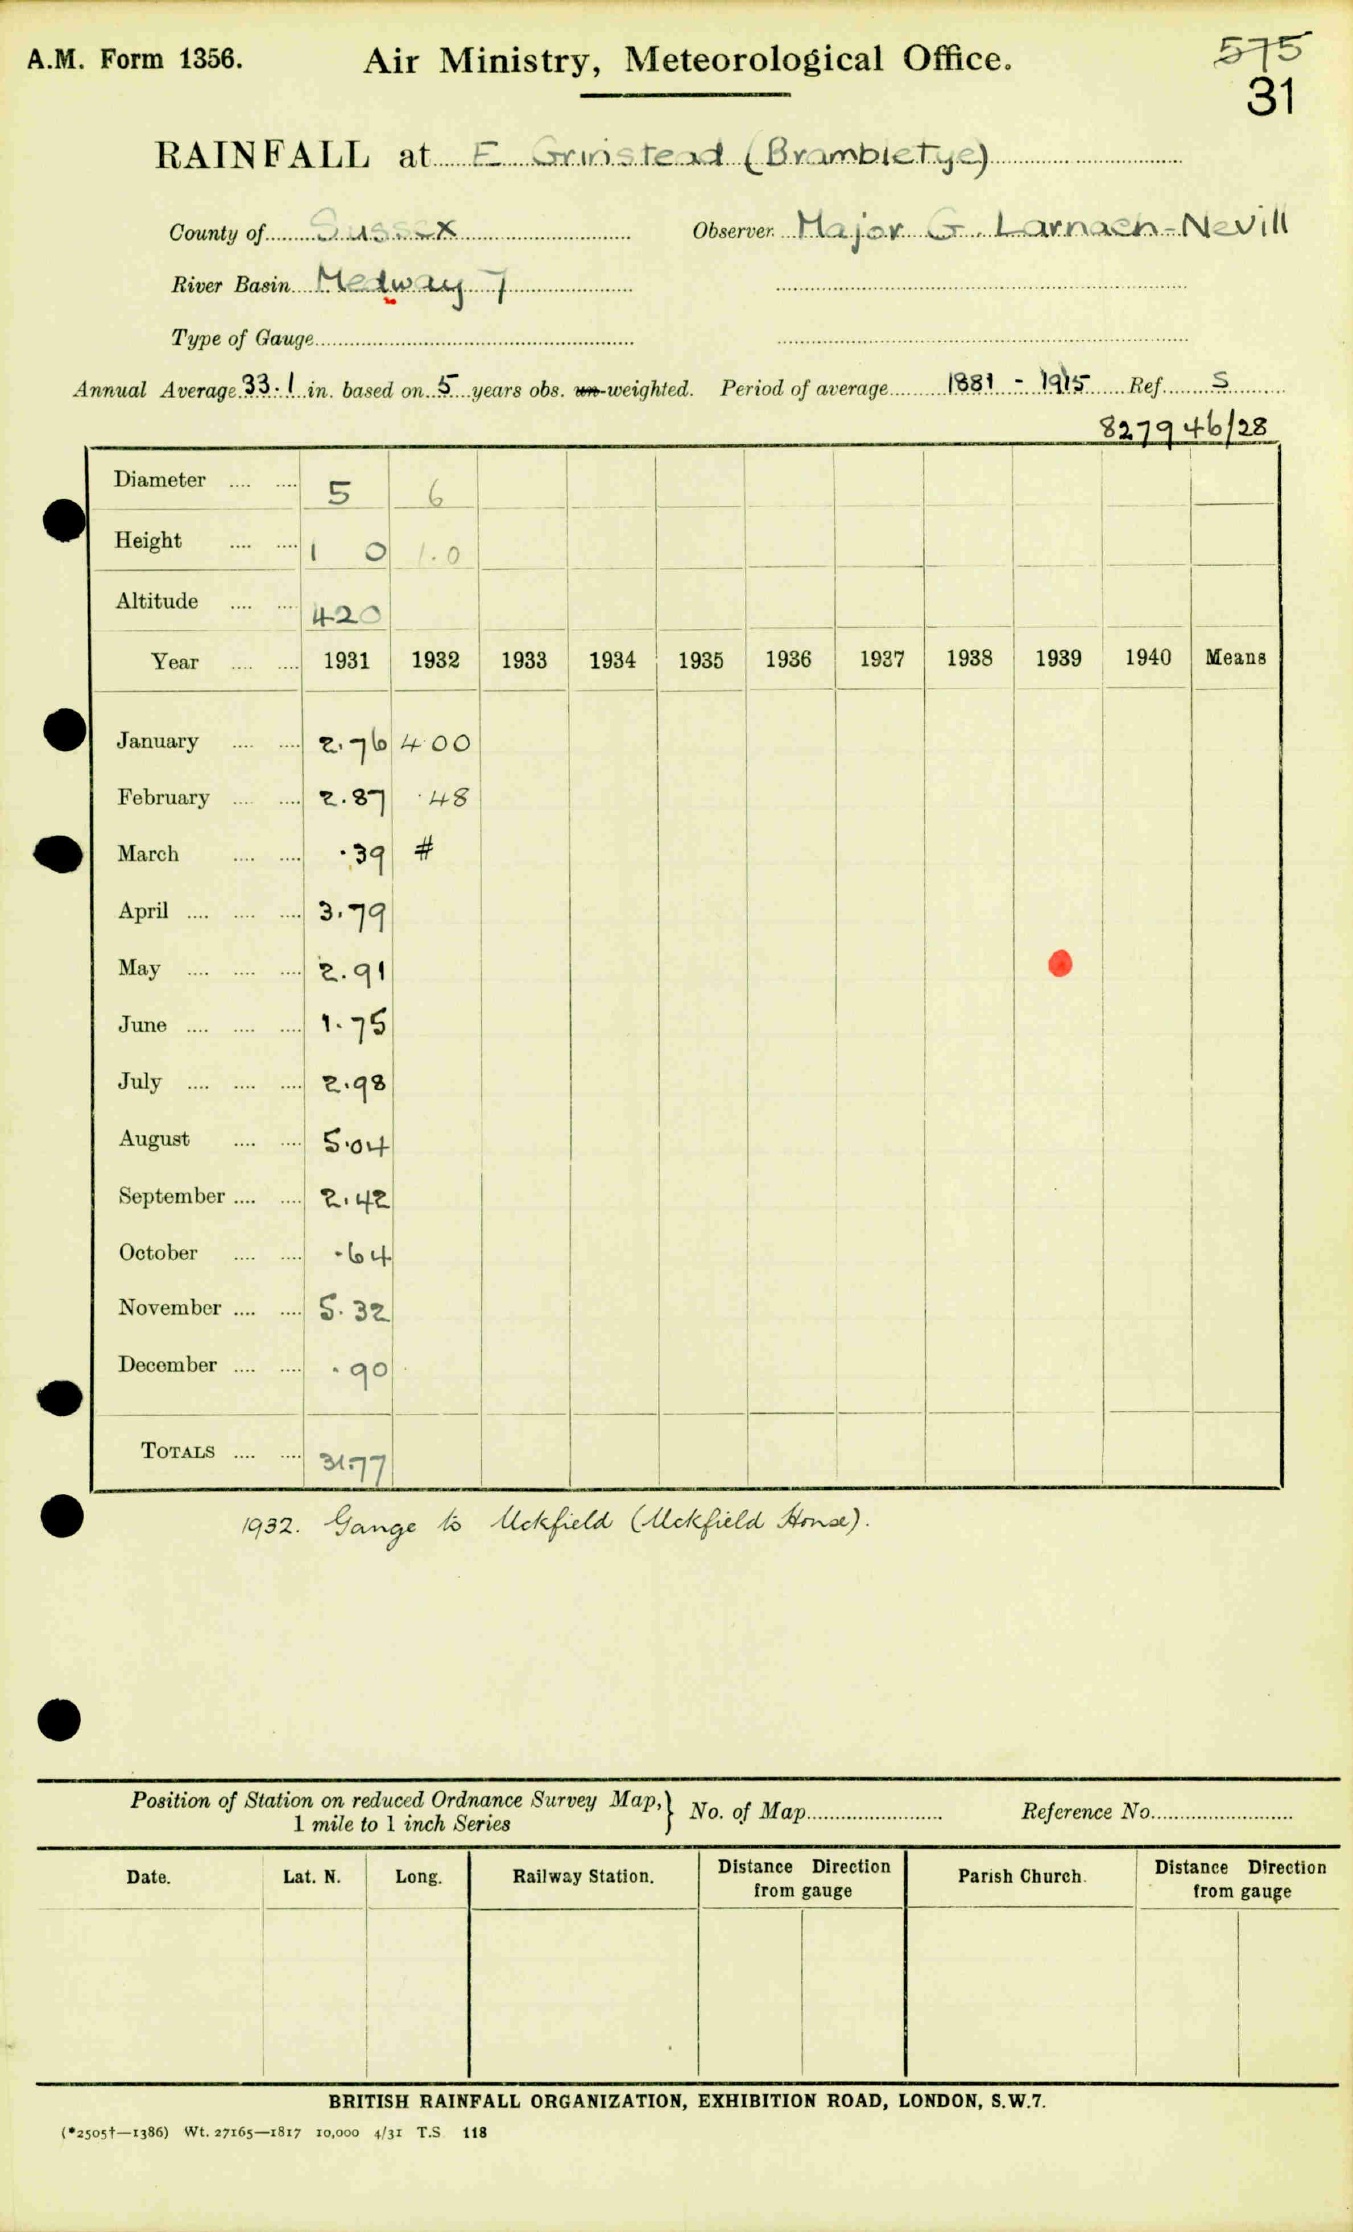 A.M. Form 1356. Air Ministry, Meteorological Office. 575
31
RAINFALL at E Grinstead (Brambletye)
County of Sussex Observer. Major G. Larnach-Nevill
River Basin Medway 7
Type of Gauge
Annual Average 33.1 in. based on 5 years obs. un-weighted. Period of average 1881 - 1915 Ref. S
827946/28
Diameter .... .... 5 6
Height .... .... 1 0 1.0
Altitude .... .... 420
Year .... .... 1931 1932 1933 1934 1935 1936 1937 1938 1939 1940 Means
January .... .... 2.76 4 00
February .... .... 2.87 .48
March .... .... .39 #
April .... .... .... 3.79
May .... .... .... 2.91
June .... .... .... 1.75
July .... .... .... 2.98
August .... .... 5.04
September .... .... 2.42
October .... .... .64
November .... .... 5.32
December .... .... .90
TOTALS .... .... 31.77
1932. Gauge to Uckfield (Uckfield House).
Position of Station on reduced Ordnance Survey Map,} No. of Map Reference No.
1 mile to 1 inch Series
Date. Lat. N. Long. Railway Station. Distance Direction from gauge Parish Church. Distance Direction from gauge
BRITISH RAINFALL ORGANIZATION, EXHIBITION ROAD, LONDON, S.W.7.
(*2505†—1386) Wt. 27165—1817 10,000 4/31 T.S. 118